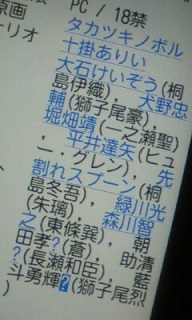 原画
ナリオ
PC / 18禁
タカツキノボル
十掛ありい
大石けいぞう(桐
島伊織)　犬野忠
輔(獅子尾豪),
堀畑靖(一之瀬聖)
, 平井達矢(ヒュ
ー・グレン), 先
割れスプーン(桐
島冬吾), 緑川光
(朱璃), 森川智
之(東條巽), 朝
田孝?(蒼), 助清
?(長瀬和臣), 藍
斗勇輝?(獅子尾烈
)